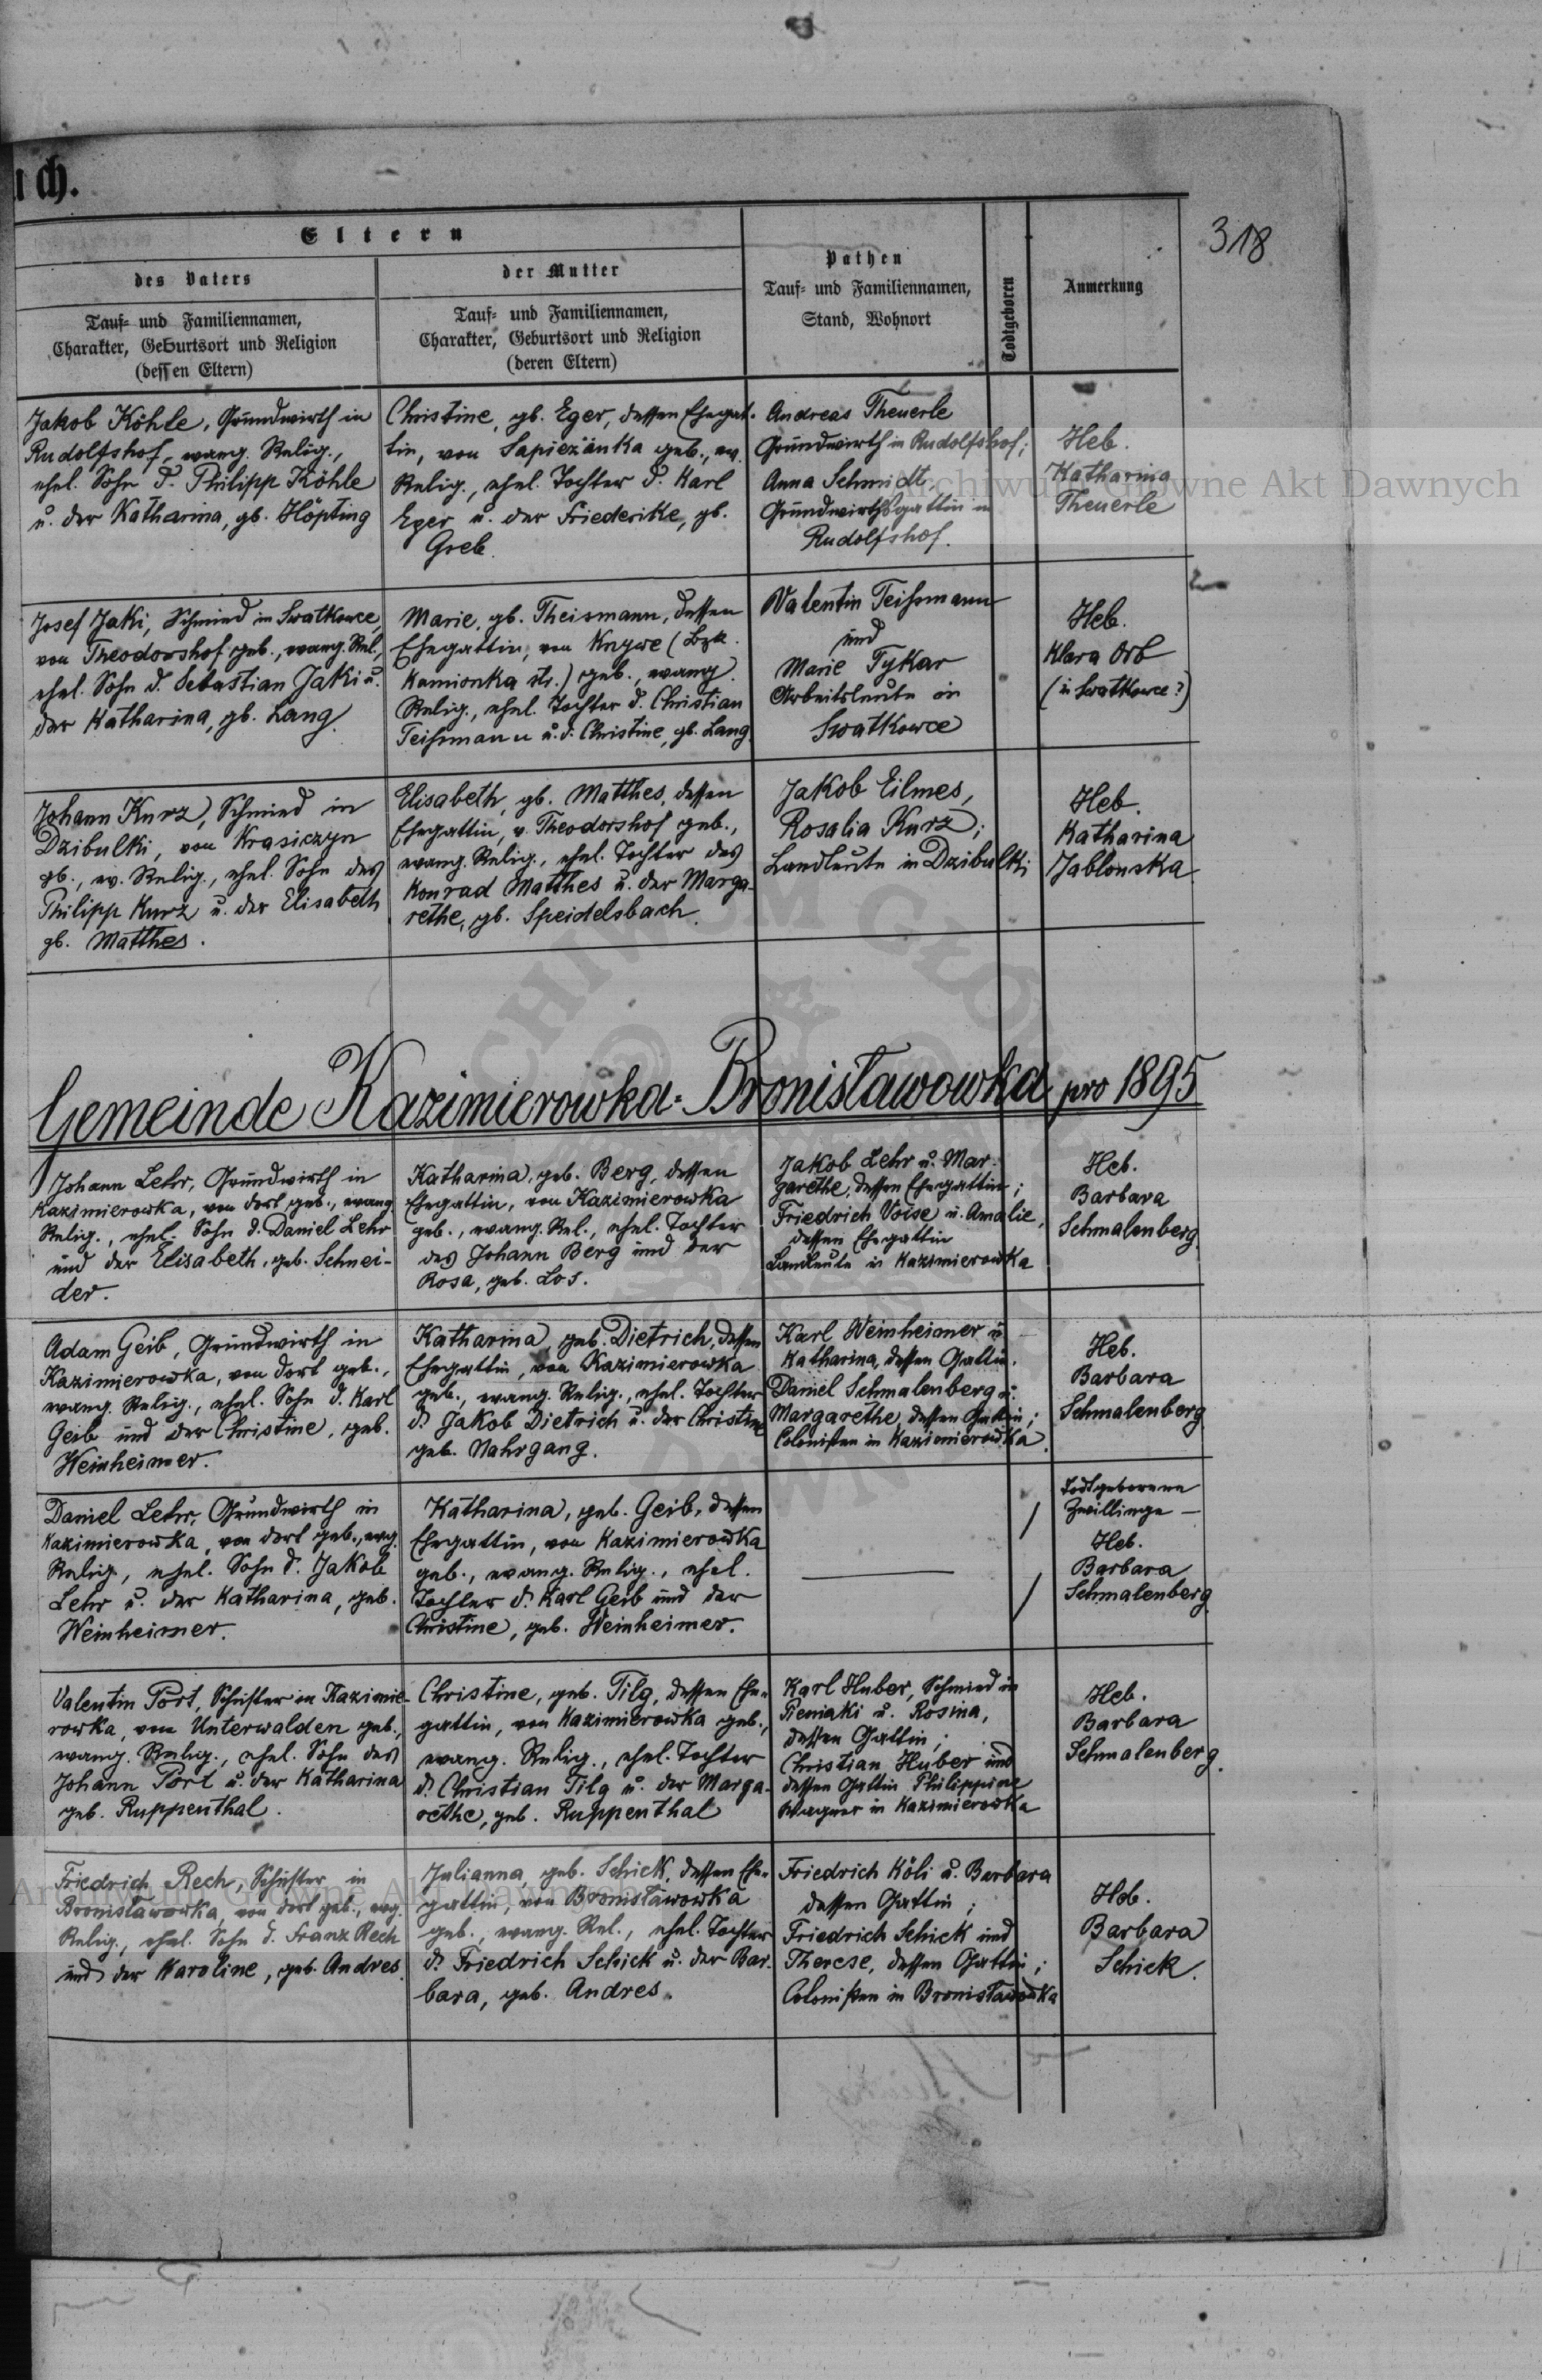 uch.
318
Eltern
des Vaters
Tauf- und Familiennamen,
Charakter, Geburtsort und Religion
(dessen Eltern)
der Mutter
Tauf- und Familiennamen,
Charakter, Geburtsort und Religion
(deren Eltern)
Pathen
Tauf- und Familiennamen,
Stand, Wohnort
Todtgeboren
Anmerkung
Jakob Köhle, Grundwirth in
Rudolfshof, evang. Relig.,
ehel. Sohn d. Philipp Köhle
u. der Katharina, gb. Höpting
Christine, gb. Eger, dessen Ehegat-
tin, von Sapiezanka geb., ev.
Relig., ehel. Tochter d. Karl
Eger u. der Friederike, gb.
Greb.
Andreas Theuerle
Grundwirth in Rudolfshof;
Anna Schmidt,
Grundwirthsgattin in
Rudolfshof.
Heb.
Katharina
Theuerle
Josef Jaki, Schmied in Swatkowce,
von Theodorshof geb., evang. Rel.,
ehel. Sohn d. Sebastian Jaki u.
der Katharina, gb. Lang.
Marie, gb. Theismann, dessen
Ehegattin, von (Bzk.
Kamionka str.) geb., evang.
Relig., ehel. Tochter d. Christian
Teißmann u. d. Christine, gb. Lang.
Valentin Teißmann
und
Marie Tykar
Arbeitsleute in
Swatkowce
Heb.
Klara Orb
(in Swatkowce?)
Johann Kurz, Schmied in
Dzibulki, von Krasiczyn
gb., ev. Relig., ehel. Sohn des
Philipp Kurz u. der Elisabeth
gb. Matthes.
Elisabeth, gb. Matthes, dessen
Ehegattin, v. Theodorshof geb.,
evang. Relig., ehel. Tochter des
Konrad Matthes u. der Marga-
rethe, gb. Speidelsbach.
Jakob Eilmes,
Rosalia Kurz;
Landleute in Dzibulki
Heb.
Katharina
Jablonska.
Gemeinde Kazimierowka-Bronisławowka pro 1895
Johann Lehr, Grundwirth in
Kazimierowka, von dort geb., evang.
Relig., ehel. Sohn d. Daniel Lehr
und der Elisabeth, geb. Schnei-
der.
Katharina, geb. Berg, dessen
Ehegattin, von Kazimierowka
geb., evang. Rel., ehel. Tochter
des Johann Berg und der
Rosa, geb. Los.
Jakob Lehr u. Mar-
garethe, dessen Ehegattin;
Friedrich Voise u. Amalie,
dessen Ehegattin
Landleute in Kazimierowka
Heb.
Barbara
Schmalenberg.
Adam Geib, Grundwirth in
Kazimierowka, von dort geb.,
evang. Relig., ehel. Sohn d. Karl
Geib und der Christine, geb.
Weinheimer.
Katharina, geb. Dietrich, dessen
Ehegattin, von Kazimierowka
geb., evang. Relig., ehel. Tochter
d. Jakob Dietrich u. der Christine
geb. Nahrgang.
Karl Weinheimer u.
Katharina, dessen Gattin.
Daniel Schmalenberg u.
Margarethe, dessen Gattin;
Colonisten in Kazimierowka.
Heb.
Barbara
Schmalenberg
Daniel Lehr, Grundwirth in
Kazimierowka, von dort geb., evg.
Relig., ehel. Sohn d. Jakob
Lehr u. der Katharina, geb.
Weinheimer.
Katharina, geb. Geib, dessen
Ehegattin, von Kazimierowka
geb., evang. Relig., ehel.
Tochter d. Karl Geib und der
Christine, geb. Weinheimer.
Todtgeborene
Zwillinge —
Heb.
Barbara
Schmalenberg.
Valentin Port, Schuster in Kazimie-
rowka, von Unterwalden geb.,
evang. Relig., ehel. Sohn des
Johann Port u. der Katharina
geb. Ruppenthal.
Christine, geb. Tilg, dessen Ehe-
gattin, von Kazimierowka geb.,
evang. Relig., ehel. Tochter
d. Christian Tilg u. der Marga-
rethe, geb. Ruppenthal
Karl Huber, Schmied in
Pieniaki u. Rosina,
dessen Gattin;
Christian Huber und
dessen Gattin Philippine
Wagner in Kazimierowka
Heb.
Barbara
Schmalenberg.
Friedrich Rech, Schuster in
Bronisławowka, von dort geb., evg.
Relig., ehel. Sohn d. Franz Rech
und der Karoline, geb. Andres.
Julianna, geb. Schick, dessen Ehe-
gattin, von Bronisławowka
geb., evang. Rel., ehel. Tochter
d. Friedrich Schick u. der Bar-
bara, geb. Andres.
Friedrich Köli u. Barbara
dessen Gattin;
Friedrich Schick und
Therese, dessen Gattin;
Colonisten in Bronisławowka
Heb.
Barbara
Schick.
Archiwum Główne Akt Dawnych